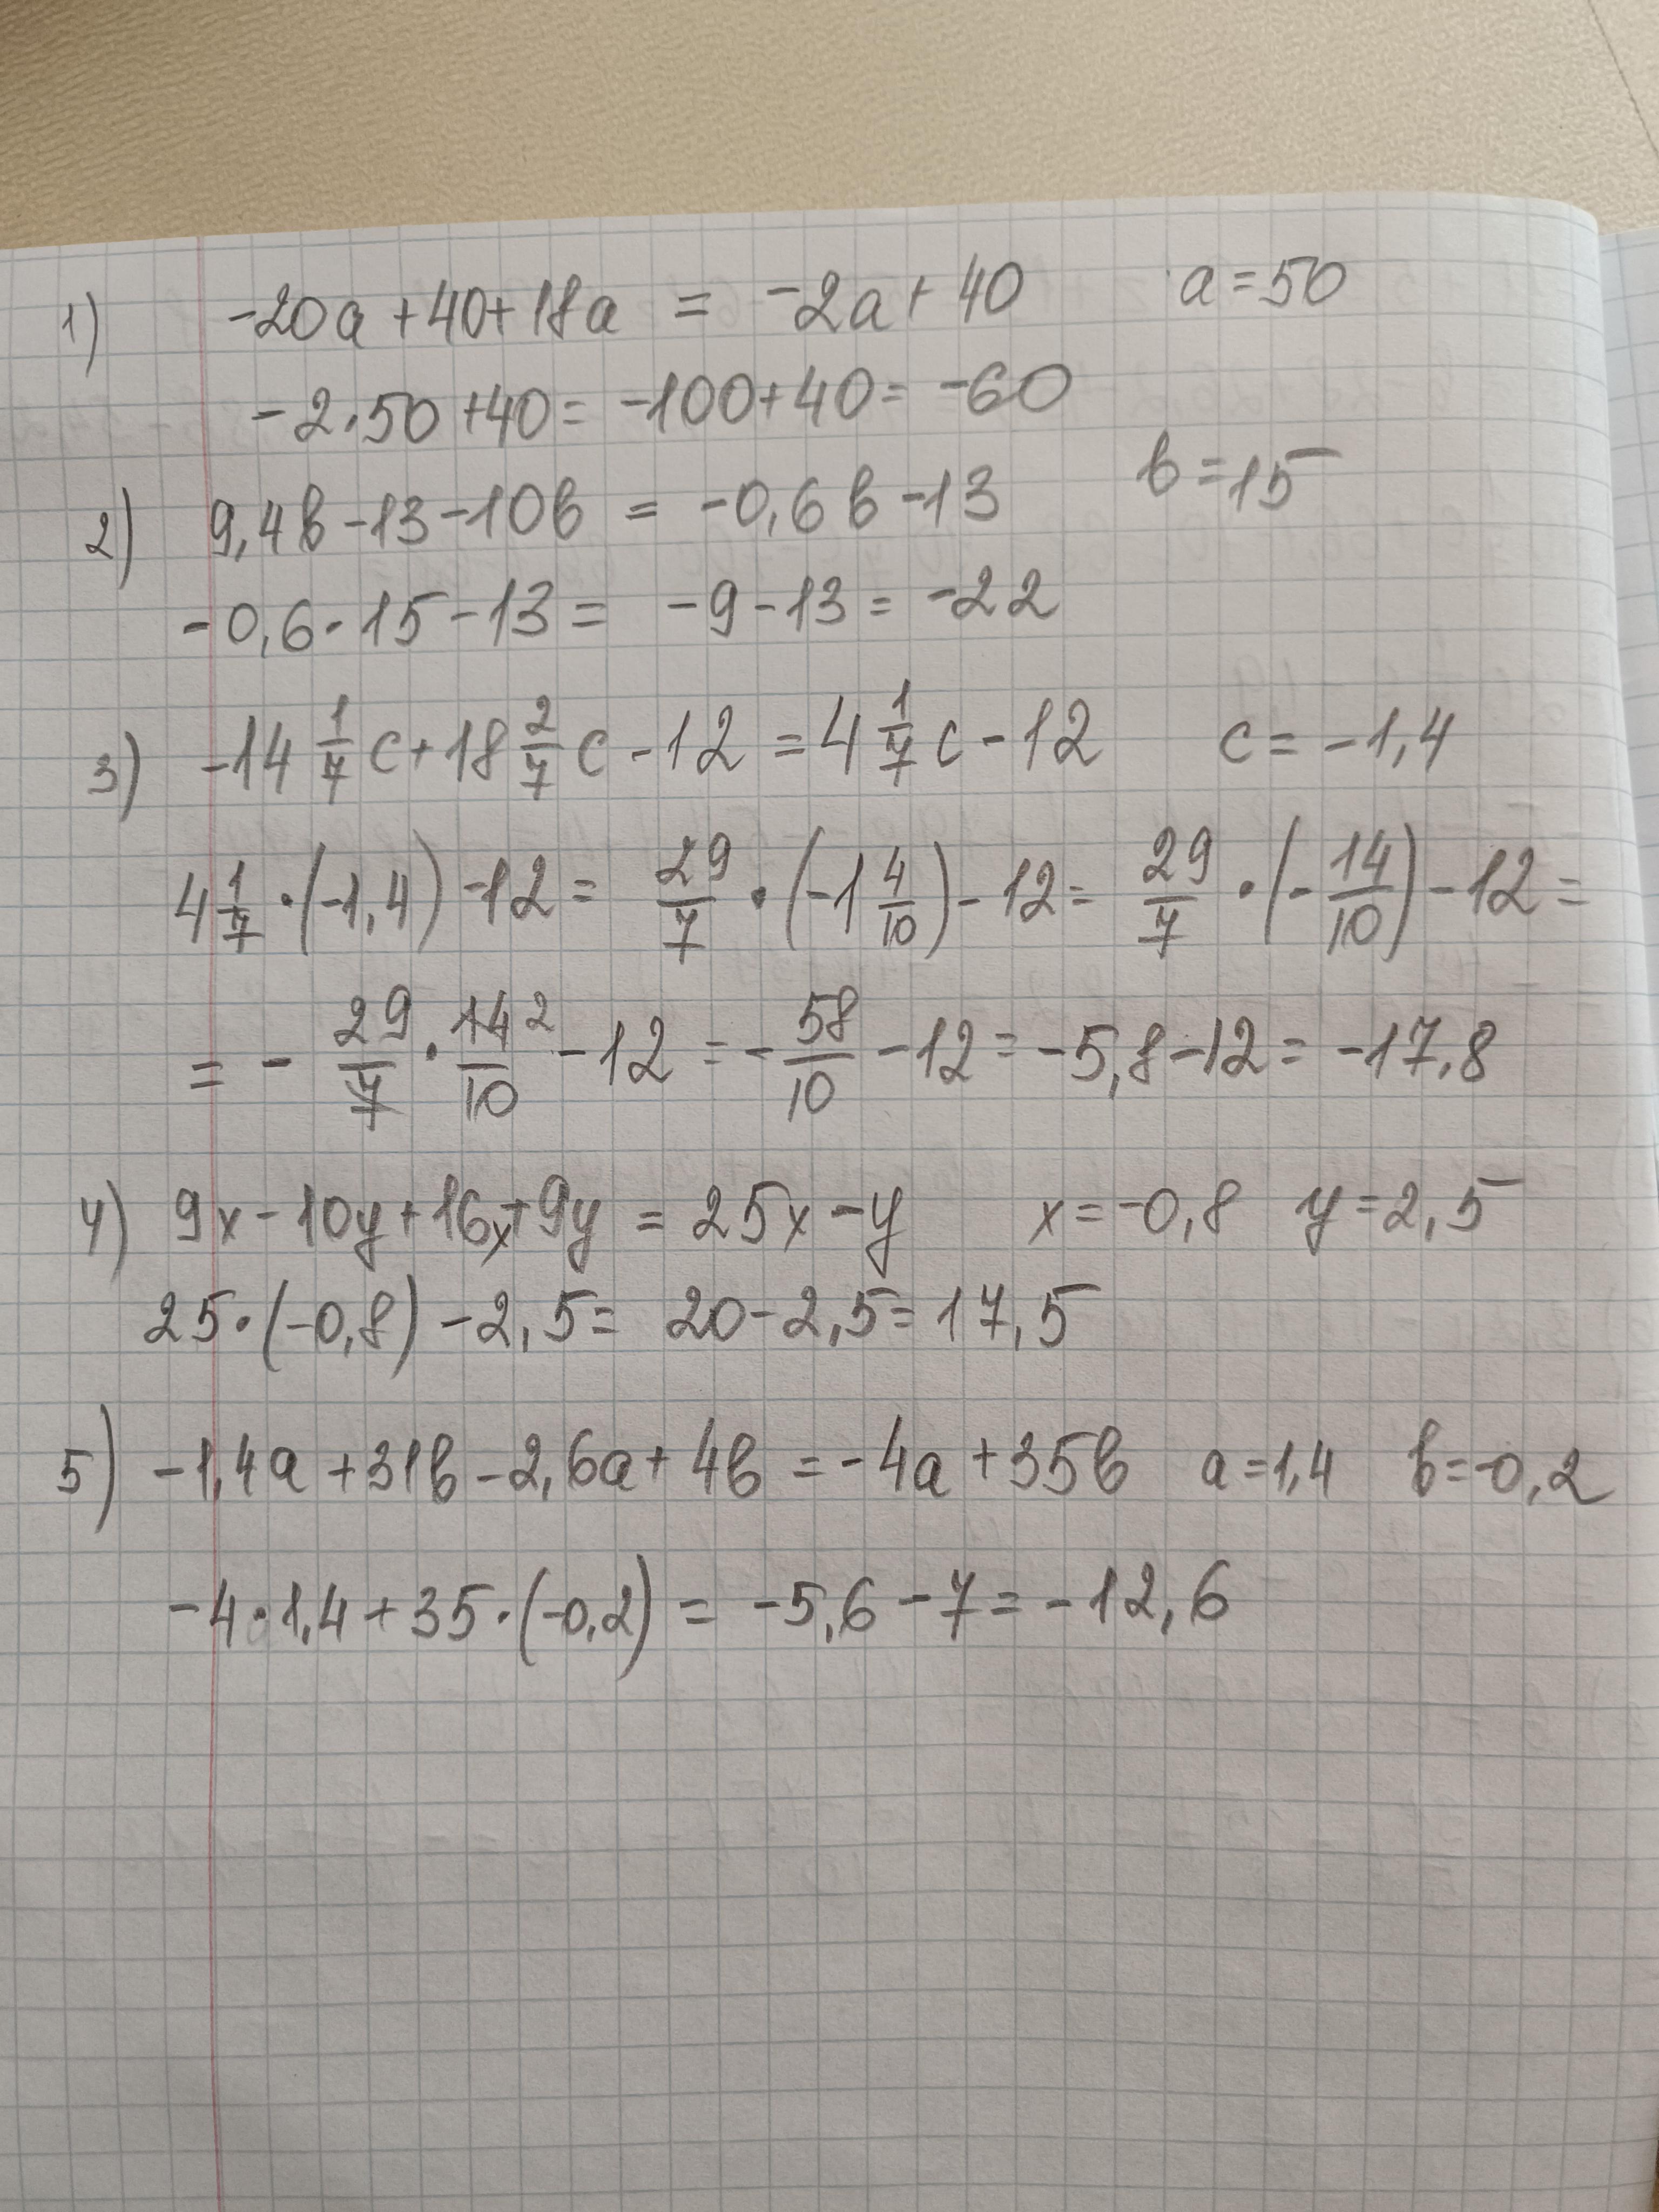 1) -20a+40+18a = -2a+40 a=50
-2·50+40= -100+40= -60
2) 9,4b-13-10b = -0,6b-13 b=15
-0,6·15-13= -9-13= -22
3) -14 1/7 c+18 2/7 c-12=4 1/7 c-12 c=-1,4
4 1/7·(-1,4)-12= 29/7·(-1 4/10)-12= 29/7·(-14/10)-12=
= - 29/7·14²/10-12=-58/10-12=-5,8-12=-17,8
4) 9x-10y+16x+9y = 25x-y x=-0,8 y=2,5
25·(-0,8)-2,5= 20-2,5=17,5
5) -1,4a+31b-2,6a+4b=-4a+35b a=1,4 b=-0,2
-4·1,4+35·(-0,2)= -5,6-7=-12,6